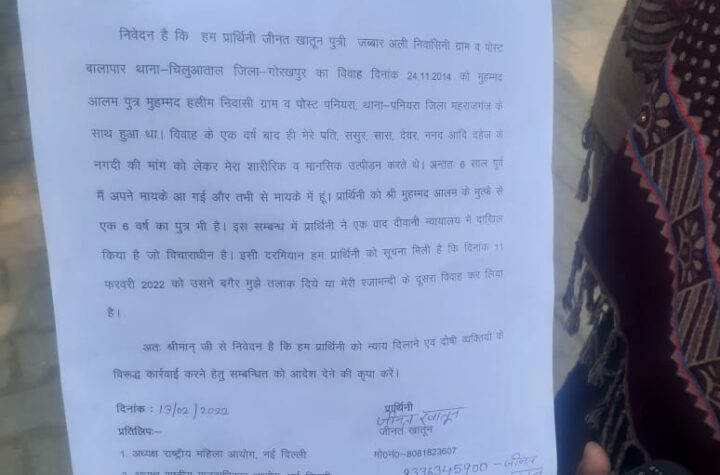 निवेदन है कि हम प्रार्थिनी जीनत खातून पुत्री जब्बार अली निवासिनी ग्राम व पोस्ट
बालापार थाना–चिलुआताल जिला–गोरखपुर का विवाह दिनांक 24.11.2014 को मुहम्मद
आलम पुत्र मुहम्मद हलीम निवासी ग्राम व पोस्ट पनियरा, थाना–पनियरा जिला महराजगंज के
साथ हुआ था। विवाह के एक वर्ष बाद ही मेरे पति, ससुर, सास, देवर, ननद आदि दहेज के
नगदी की मांग को लेकर मेरा शारीरिक व मानसिक उत्पीड़न करते थे। अन्ततः 6 साल पूर्व
मैं अपने मायके आ गई और तभी से मायके में हूं। प्रार्थिनी को श्री मुहम्मद आलम के नुत्फे से
एक 6 वर्ष का पुत्र भी है। इस सम्बन्ध में प्रार्थिनी ने एक वाद दीवानी न्यायालय में दाखिल
किया है जो विचाराधीन है। इसी दरमियान हम प्रार्थिनी को सूचना मिली है कि दिनांक 11
फरवरी 2022 को उसने बगैर मुझे तलाक दिये या मेरी रजामन्दी के दूसरा विवाह कर लिया
है।
अतः श्रीमान् जी से निवेदन है कि हम प्रार्थिनी को न्याय दिलाने एवं दोषी व्यक्तियों के
विरूद्ध कार्रवाई करने हेतु सम्बन्धित को आदेश देने की कृपा करें।
दिनांक : 13/02/2022 प्रार्थिनी
जीनत खातून
प्रतिलिपिः– जीनत खातून
1. अध्यक्ष राष्ट्रीय महिला आयोग, नई दिल्ली मो0नं0–8081823607
9336345900 – जीनत